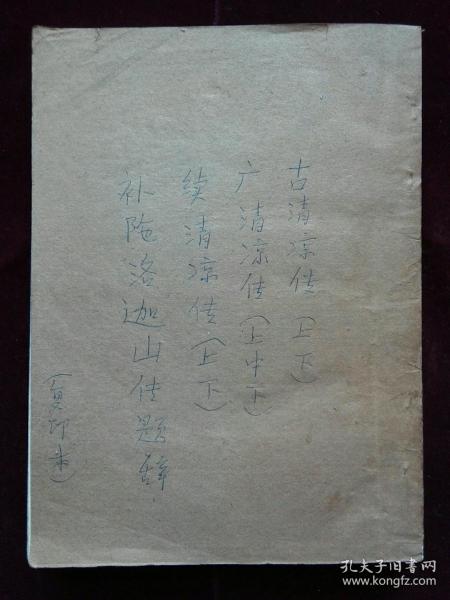 古清凉传（上下）
广清凉传（上中下）
续清凉传（上下）
补陀洛迦山传题辞
（复印本）
孔夫子旧书网
www.kongfz.com